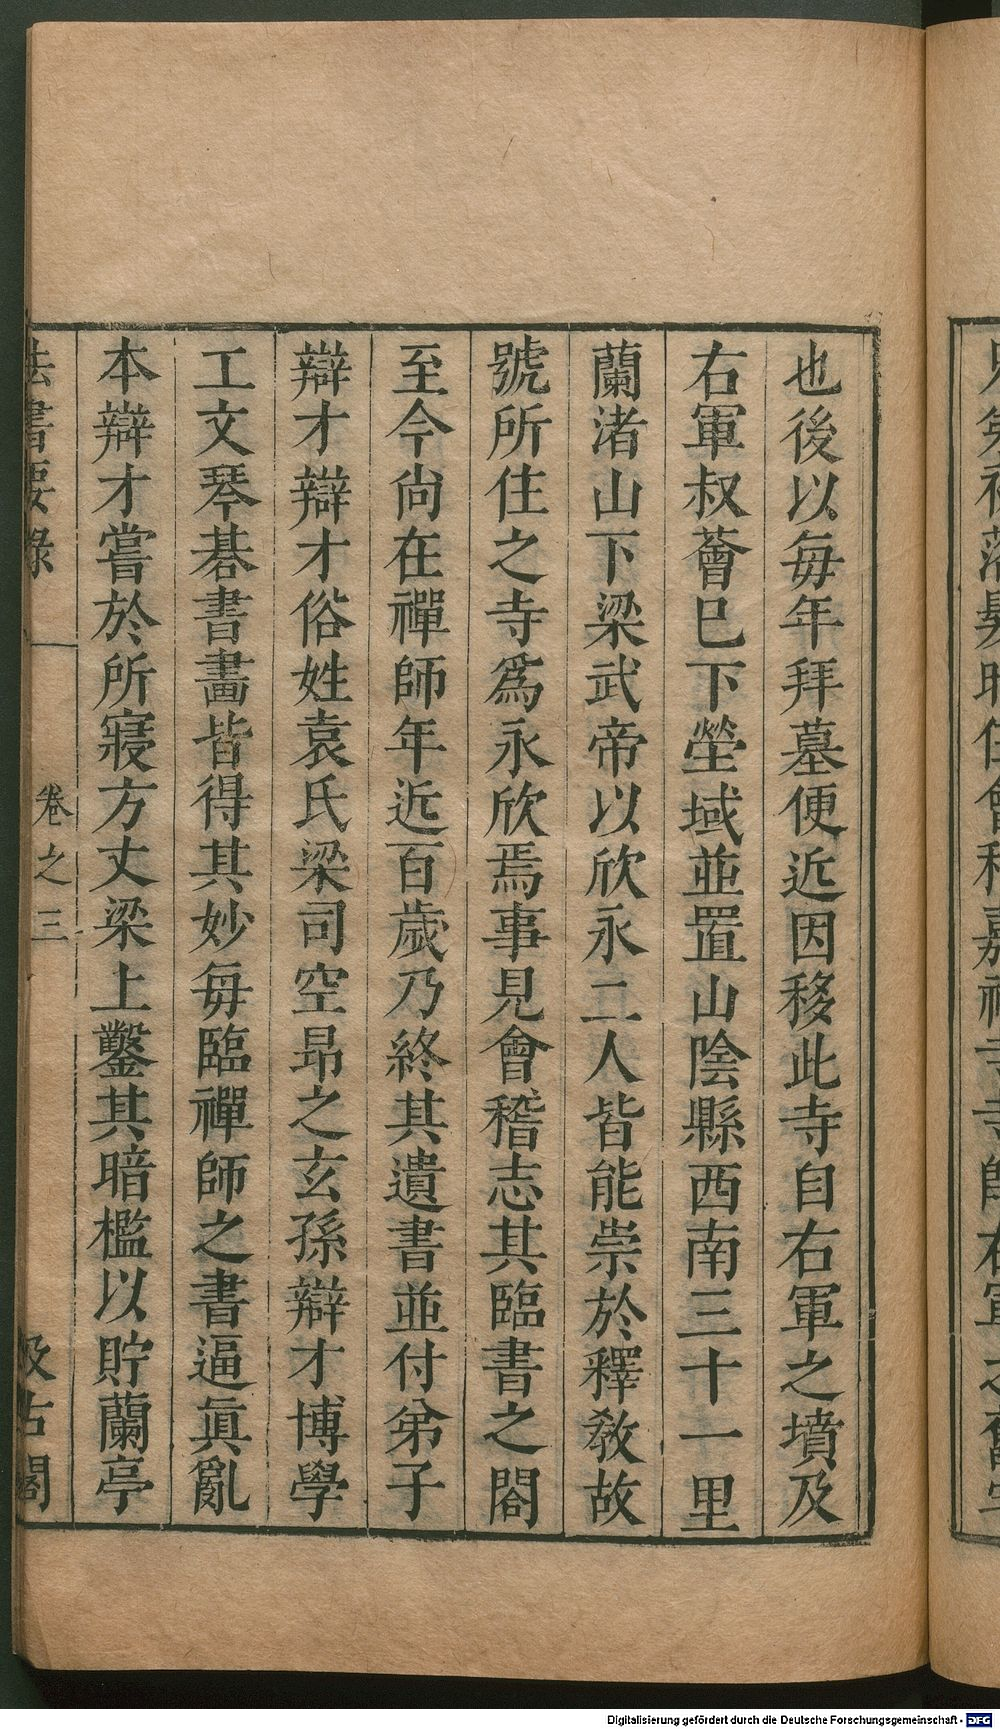 也後以每年拜墓便近因移此寺自右軍之墳及
右軍叔薈巳下塋域並置山陰縣西南三十一里
蘭渚山下梁武帝以欣永二人皆能崇於釋敎故
號所住之寺爲永欣焉事見會稽志其臨書之閣
至今尙在禪師年近百歲乃終其遺書並付弟子
辯才辯才俗姓袁氏梁司空昻之玄孫辯才博學
工文琴碁書畵皆得其妙每臨禪師之書逼眞亂
本辯才嘗於所寢方丈梁上鑿其暗檻以貯蘭亭
法書要錄
卷之三
汲古閣
Digitalisierung gefördert durch die Deutsche Forschungsgemeinschaft - DFG